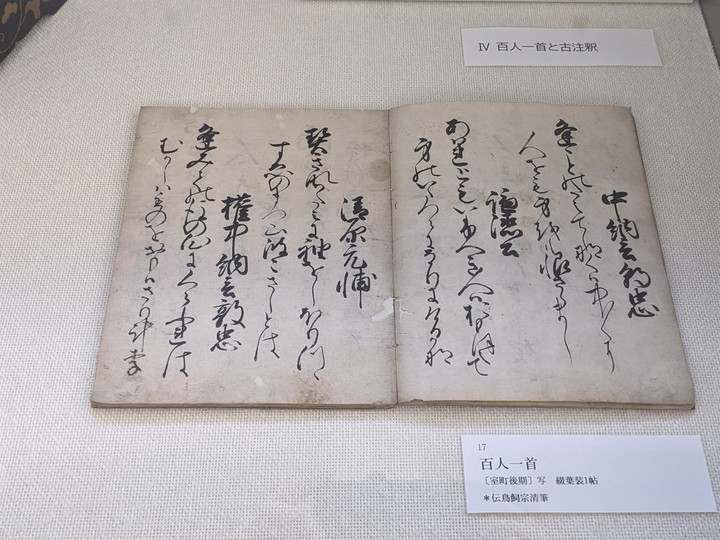 Ⅳ 百人一首と古注釈
中納言朝忠
逢ことのたえてしなくは中〱に
人をも身をも恨さらまし
謙徳公
あはれともいふへき人はおもほえて
身のいたつらになりぬへき哉
清原元輔
契きなかたみに袖をしほりつゝ
すゑのまつ山波こさしとは
権中納言敦忠
逢みての後の心にくらふれは
むかしはものをおもはさりけり
17
百人一首
〔室町後期〕写　綴葉装1帖
＊伝鳥飼宗清筆